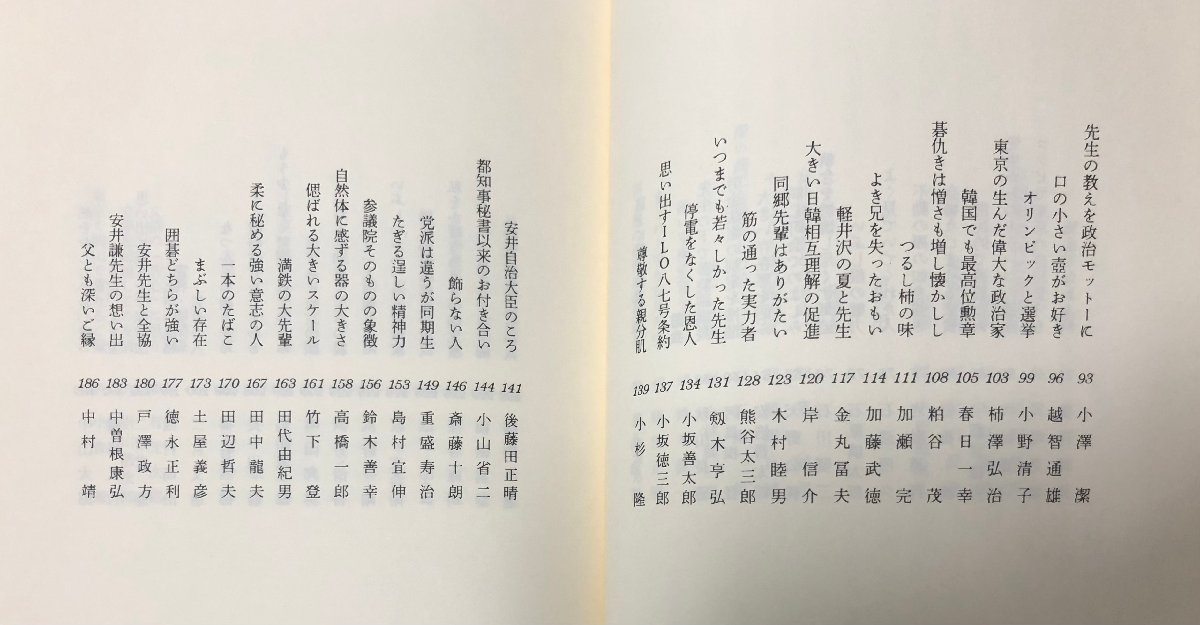 先生の教えを政治モットーに 93 小澤 潔
口の小さい壺がお好き 96 越智通雄
オリンピックと選挙 99 小野清子
東京の生んだ偉大な政治家 103 柿澤弘治
韓国でも最高位勲章 105 春日一幸
碁仇きは憎さも増し懐かしし 108 粕谷 茂
つるし柿の味 111 加瀬 完
よき兄を失ったおもい 114 加藤武徳
軽井沢の夏と先生 117 金丸冨夫
大きい日韓相互理解の促進 120 岸 信介
同郷先輩はありがたい 123 木村睦男
筋の通った実力者 128 熊谷太三郎
いつまでも若々しかった先生 131 剱木亨弘
停電をなくした恩人 134 小坂善太郎
思い出すILO八七号条約 137 小坂徳三郎
尊敬する親分肌 139 小杉 隆
安井自治大臣のころ 141 後藤田正晴
都知事秘書以来のお付き合い 144 小山省二
飾らない人 146 斎藤十朗
党派は違うが同期生 149 重盛寿治
たぎる逞しい精神力 153 島村宜伸
参議院そのものの象徴 156 鈴木善幸
自然体に感ずる器の大きさ 158 高橋一郎
偲ばれる大きいスケール 161 竹下 登
満鉄の大先輩 163 田代由紀男
柔に秘める強い意志の人 167 田中龍夫
一本のたばこ 170 田辺哲夫
まぶしい存在 173 土屋義彦
囲碁どちらが強い 177 徳永正利
安井先生と全協 180 戸澤政方
安井謙先生の想い出 183 中曽根康弘
父とも深いご縁 186 中村 靖